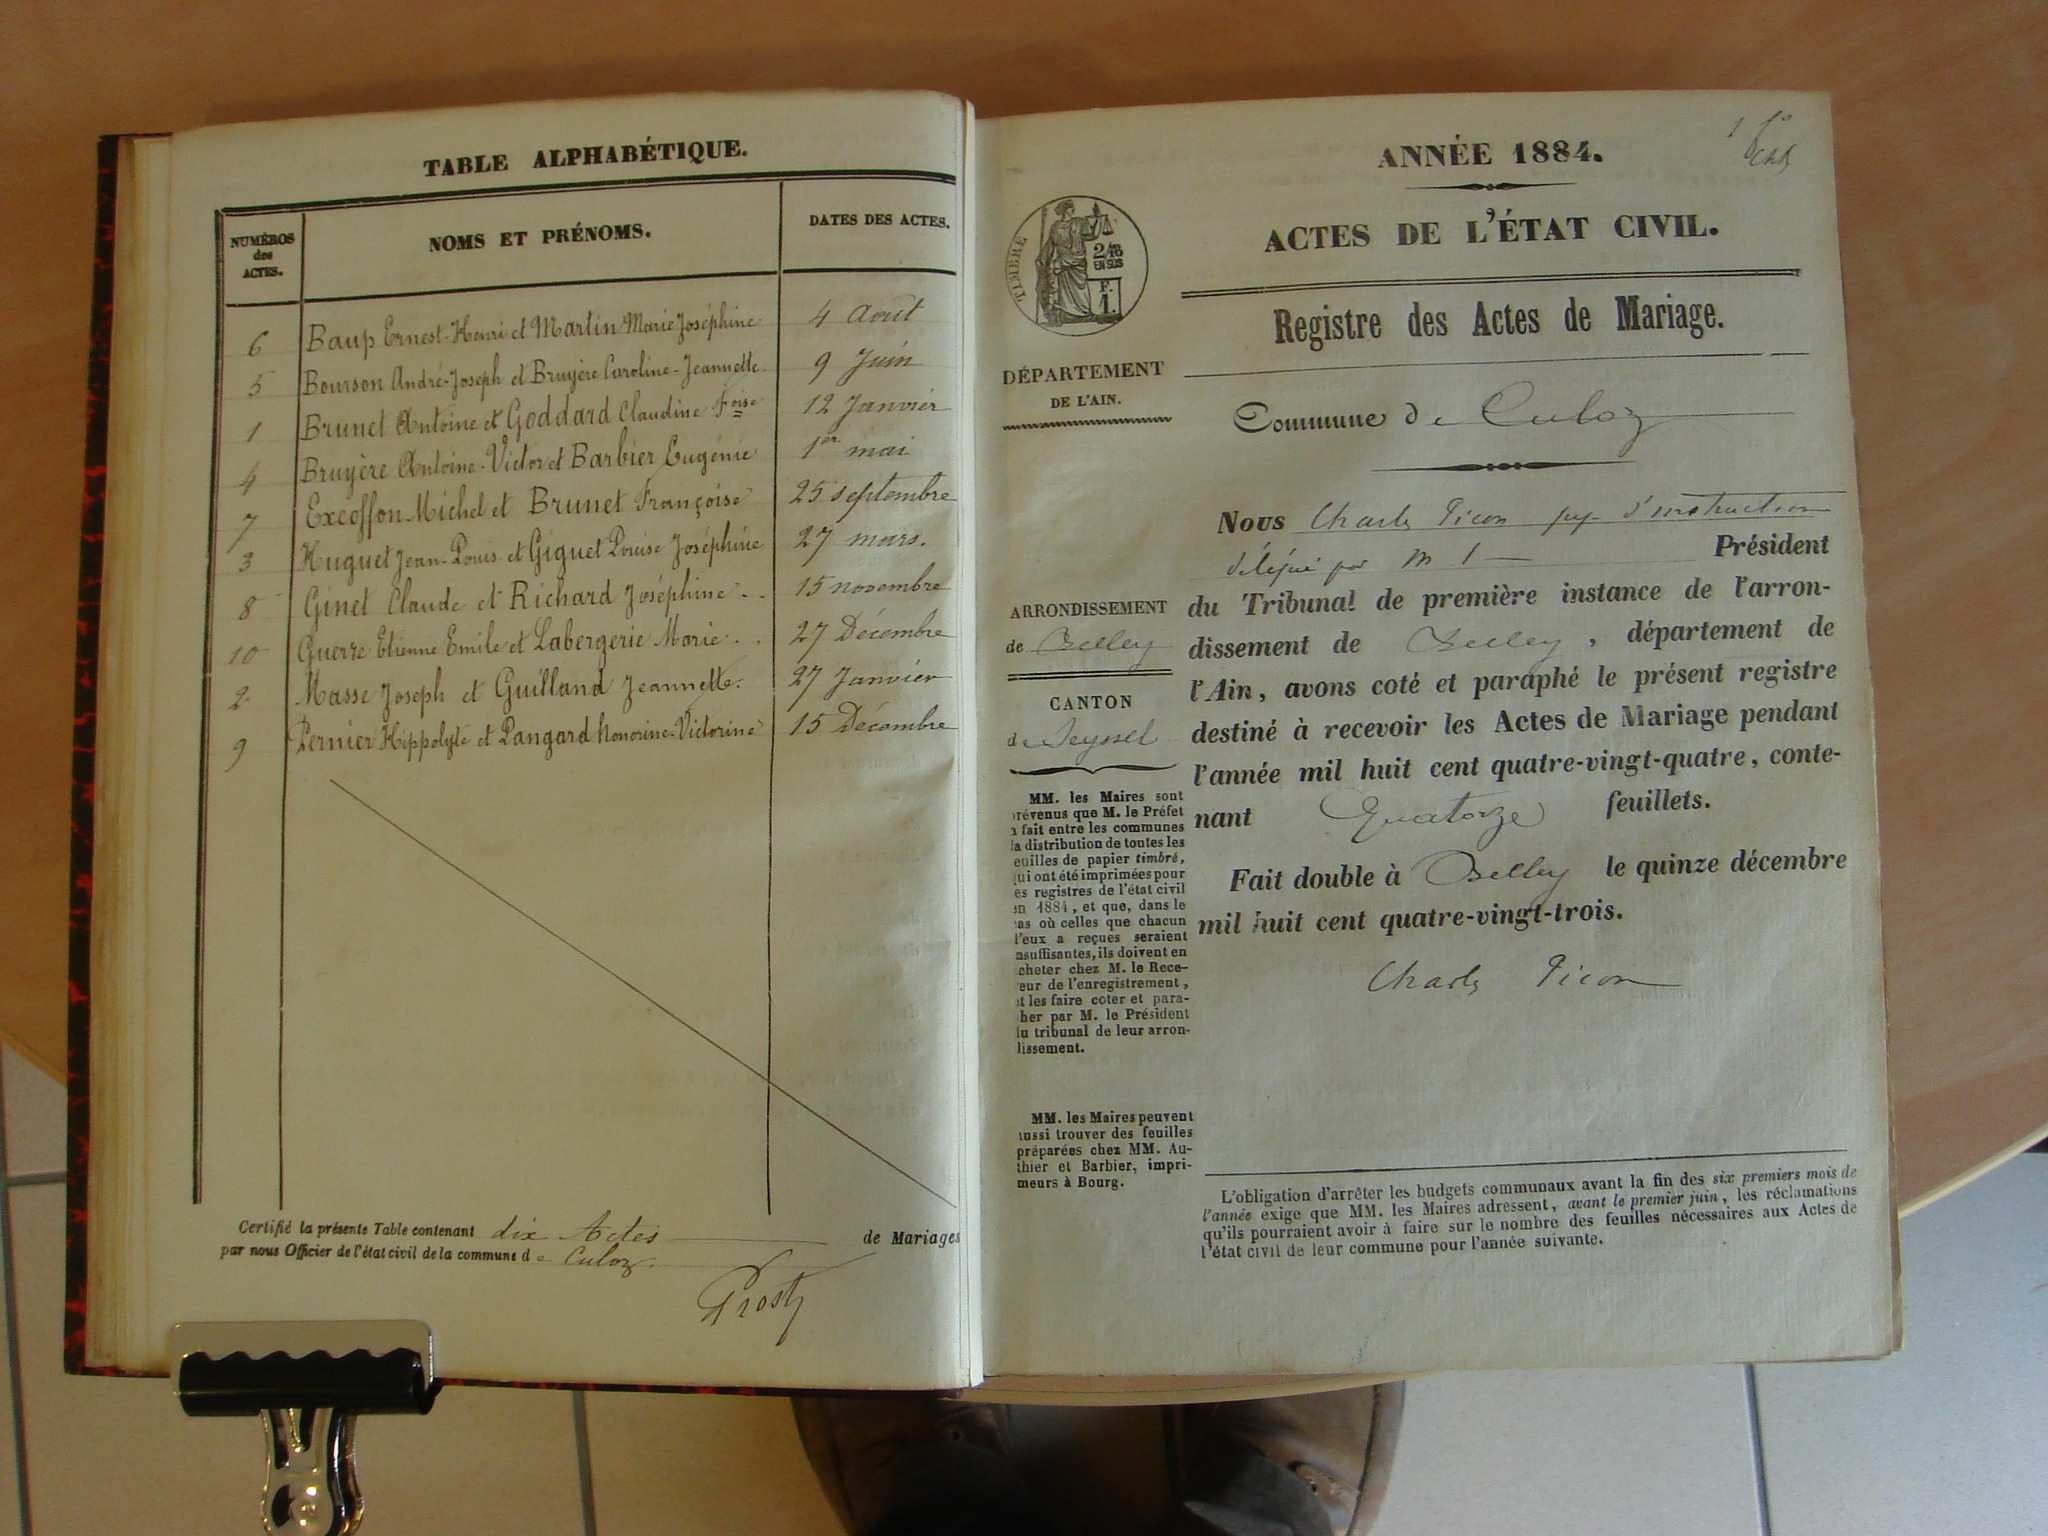 TABLE ALPHABÉTIQUE.
NUMÉROS des ACTES. NOMS ET PRÉNOMS. DATES DES ACTES.
6 Baup Ernest-Henri et Martin Marie Joséphine 4 Août
5 Bourson André-Joseph et Bruyère Caroline-Jeannette 9 Juin
1 Brunet Antoine et Goddard Claudine Foise 12 Janvier
4 Bruyère Antoine-Victor et Barbier Eugénie 1er mai
7 Excoffon Michel et Brunet Françoise 25 septembre
3 Huguet Jean-Louis et Giguet Louise Joséphine 27 mars.
8 Ginet Claude et Richard Joséphine . . 15 novembre
10 Guerre Etienne Emile et Labergerie Marie . . 27 Décembre
2 Masse Joseph et Guilland Jeannette. 27 Janvier
9 Pernier Hippolyte et Pangard honorine-Victorine 15 Décembre
Certifié la présente Table contenant dix Actes de Mariages
par nous Officier de l'état civil de la commune de Culoz.
Prost
ANNÉE 1884.
ACTES DE L'ÉTAT CIVIL.
TIMBRE
2/10
EN SUS
F.
1.
Registre des Actes de Mariage.
DÉPARTEMENT
DE L'AIN.
Commune de Culoz
Nous Charles Picon juge d'instruction
délégué par M l Président
du Tribunal de première instance de l'arron-
dissement de Belley, département de
l'Ain, avons coté et paraphé le présent registre
destiné à recevoir les Actes de Mariage pendant
l'année mil huit cent quatre-vingt-quatre, conte-
nant Quatorze feuillets.
Fait double à Belley le quinze décembre
mil huit cent quatre-vingt-trois.
Charles Picon
ARRONDISSEMENT
de Belley
CANTON
de Seyssel
MM. les Maires sont
révenus que M. le Préfet
a fait entre les communes
la distribution de toutes les
euilles de papier timbré,
ui ont été imprimées pour
es registres de l'état civil
en 1884, et que, dans le
as où celles que chacun
l'eux a reçues seraient
nsuffisantes, ils doivent en
cheter chez M. le Rece-
eur de l'enregistrement,
t les faire coter et para-
her par M. le Président
u tribunal de leur arron-
lissement.
MM. les Maires peuvent
ussi trouver des feuilles
préparées chez MM. Au-
thier et Barbier, impri-
meurs à Bourg.
L'obligation d'arrêter les budgets communaux avant la fin des six premiers mois de
l'année exige que MM. les Maires adressent, avant le premier juin, les réclamations
qu'ils pourraient avoir à faire sur le nombre des feuilles nécessaires aux Actes de
l'état civil de leur commune pour l'année suivante.